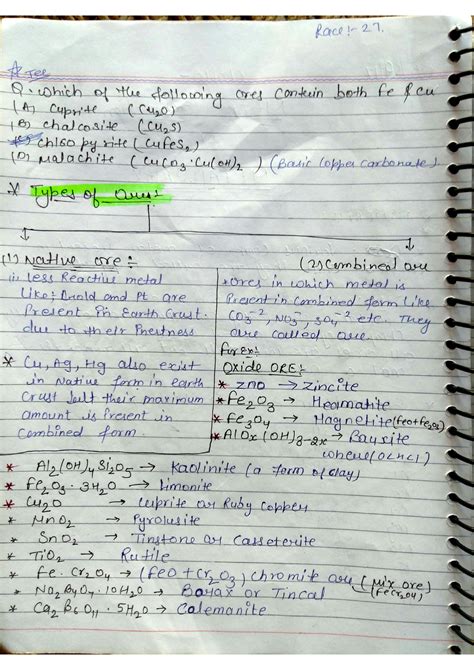 Race:- 27.
☆ JEE
Q. which of the following ores contain both Fe & Cu
(A) Cuprite (Cu2O)
(B) Chalcosite (Cu2S)
Chalco py rite (CuFeS2)
(D) Malachite (CuCO3·Cu(OH)2) (Basic Copper Carbonate)
* Types of Ores:-
(1) Native ore :-
(i) Less Reactive metal
Like; Gold and Pt are
Present in Earth Crust.
due to their Inertness.
* Cu, Ag, Hg also exist
in Native form in earth
Crust but their maximum
amount is Present in
Combined form
(2) Combined ore
* ores in which metal is
Present in Combined form Like
CO3-2, NO3-, SO4-2 etc. They
are called are.
for Ex:
Oxide ORE:-
* ZnO → Zincite
* Fe2O3 → Heamatite
* Fe3O4 → Magnetite (FeO+Fe2O3)
* AlOx(OH)3-2x → Bauxite
where (0<x<1)
* Al2(OH)4Si2O5 → Kaolinite (a form of clay)
* Fe2O3·3H2O → Limonite
* Cu2O → Cuprite or Ruby Copper
* MnO2 → Pyrolusite
* SnO2 → Tinstone or Casseterite
* TiO2 → Rutile
* Fe·Cr2O4 → (FeO+Cr2O3) chromite ore (Mix ore) (FeCr2O4)
* Na2B4O7·10H2O → Borax or Tincal
* Ca2B6O11·5H2O → Colemanite